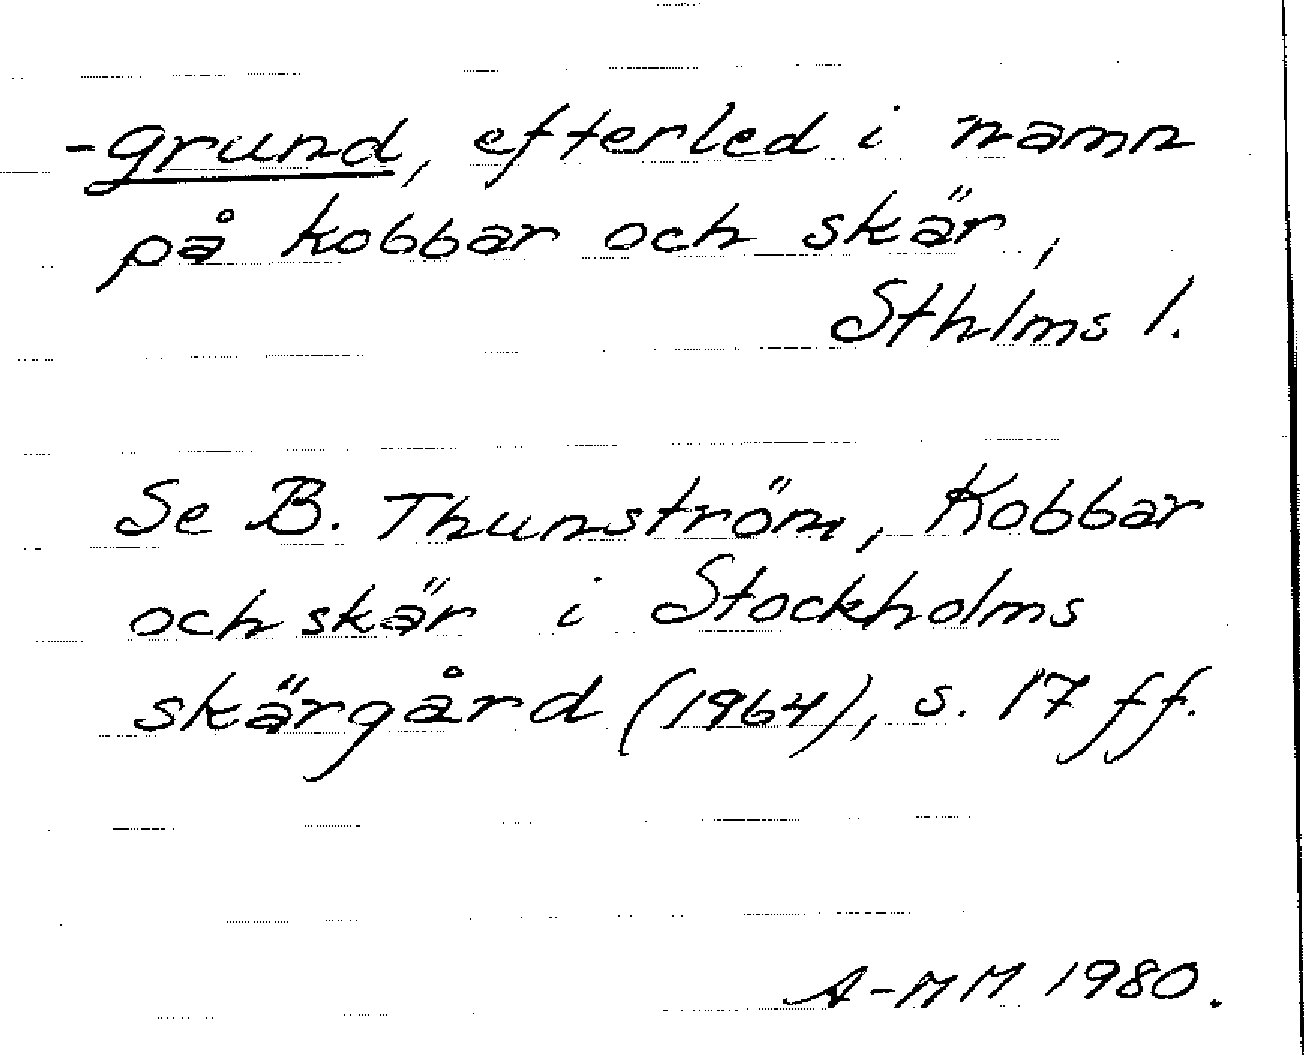 -grund, efterled i namn
på kobbar och skär,
Sthlms l.
Se B. Thunström, Kobbar
och skär i Stockholms
skärgård (1964), s. 17 ff.
A-MM 1980.